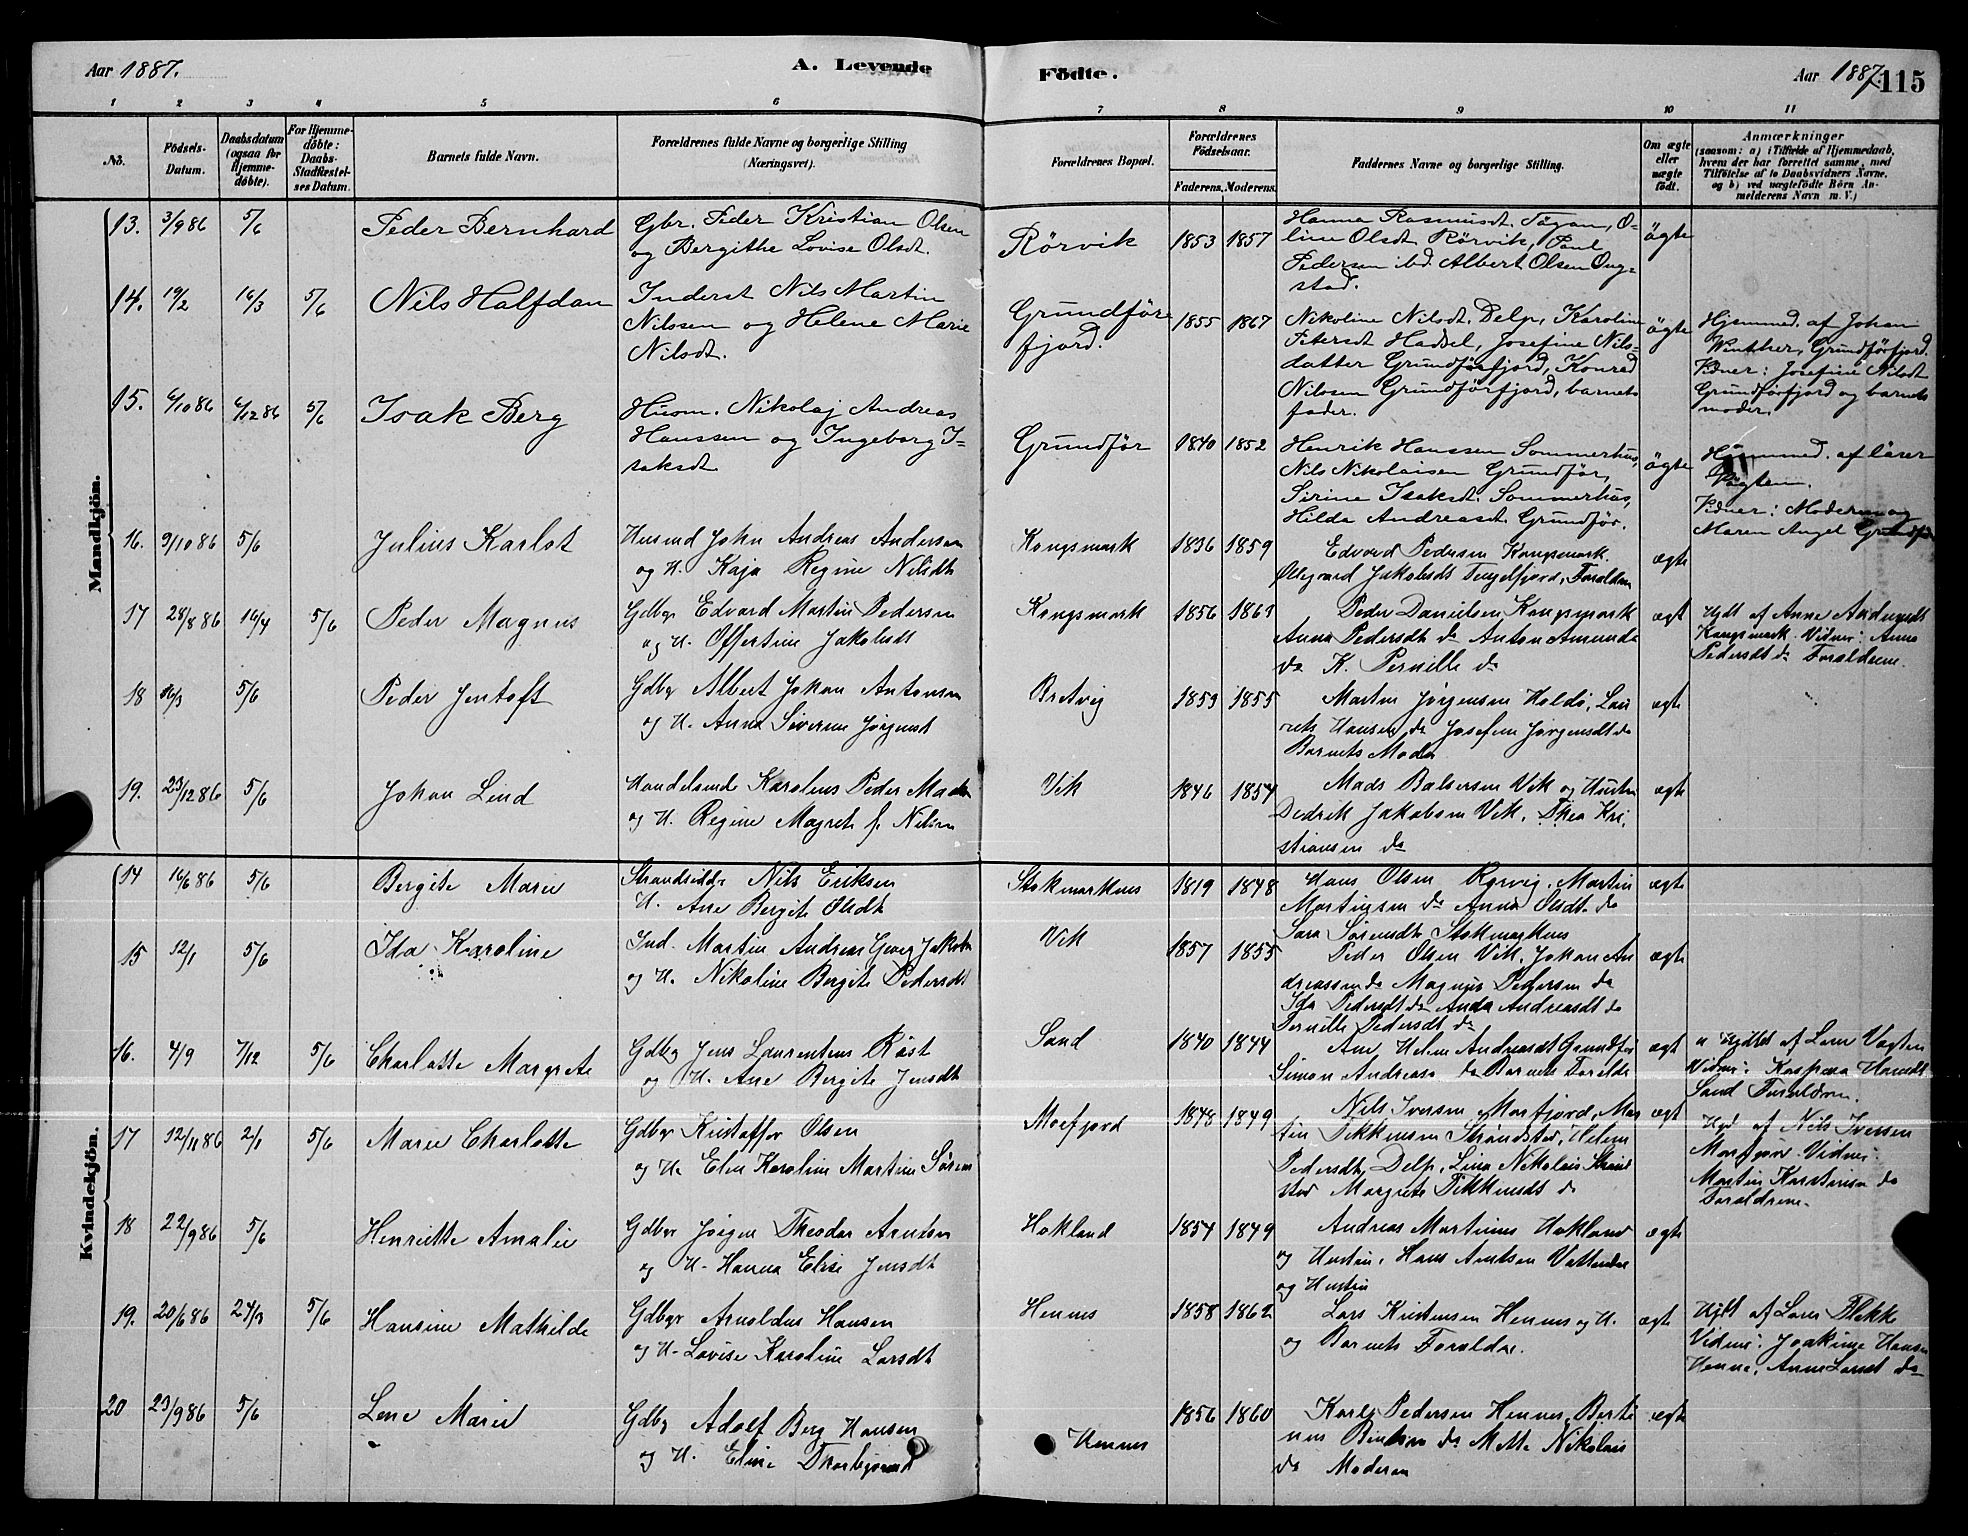 Aar 1887.
A. Levende
Födte.
Aar 1887.
115
1 2 3 4 5 6 7 8 9 10 11
No.
Födsels-
Datum.
Daabsdatum
(ogsaa for
Hjemme-
döbte).
For Hjemme-
döbte:
Daabs-
Stadfæstel-
ses Datum.
Barnets fulde Navn.
Forældrenes fulde Navne og borgerlige Stilling
(Næringsvei).
Forældrenes Bopæl.
Forældrenes
Födselsaar.
Faderens. Moderens.
Faddernes Navne og borgerlige Stilling.
Om ægte
eller
uægte
födt.
Anmærkninger
(saasom: a) i Tilfælde af Hjemmedaab,
hvem der har forrettet samme, med
Tilföielse af to Daabsvidners Navne,
og b) ved uægtefödte Börn An-
melderens Navn m. V.)
Mandkjön.
13. 3/9 86 5/6 Peder Bernhard
Gbr. Peder Kristian Olsen
og Bergithe Lovise Olsdt.
Rörvik 1853 1857
Hanna Rasmusdt. O-
line Olsdt Rörvik, Paul
Pedersen ibd. Albert Olsen Ong-
stad.
ägte
14. 19/2 16/3 5/6 Nils Halfdan
Inderst Nils Martin
Nilssen og Helene Marie
Nilsdt.
Grundföre
fjord.
1855 1867
Nikoline Nilsdt. Delp, Karoline
Petersdt Hadsel, Josefine Nils-
datter Grundförfjord, Konrad
Nilssen Grundförfjord, barnets
fader.
ägte
Hjemmed. af Johan
Winther, Grundförfjord.
Vidner: Josefine Nilsdt
Grundförfjord og barnets
moder.
15. 6/10 86 6/12 86 5/6 Isak Berg
Husm. Nikolaj Andreas
Hanssen og Ingeborg I-
saksdt
Grundför 1840 1852
Henrik Hanssen Sommerhus,
Nils Nikolaisen Grundför,
Serine Isaksdt. Sommerhus,
Hilda Andreasdt. Grundför.
ägte
Hjemmed. af lärer
Vagten.
Vidner: Moderen og
Maren Angel
16. 9/10 86 5/6 Julius Karlot
Husmd John Andreas Andersen
og H. Kaja Regine Nilsdt
Kongsmark 1836 1859
Edvard Pedersen Kongsmark
Jakobsdt Forældrene
ægte
17 28/8 86 16/4 5/6 Peder Magnus
Gdbgr Edvard Martin Pedersen
og H. Offertine Jakobsdt
Kongsmark 1856 1863
Peder Danielsen Kongsmark
Anna Pedersdt do Anton Amunds
do K. Pernille do
ægt
Hjdt af Anne
Kongsmark. Vidner: Anna
Pedersdt do Forældrene.
18 16/3 5/6 Peder Jentoft
Gdbgr Albert Johan Antonsen
og H. Anna Severine Jørgensdt
Bretvig 1859 1855
Martin Jørgensen Holdö, Lau
rits Hansen do Josefine Jørgensdt do
Barnets Moder
ægte
19. 23/12 86 5/6 Johan Lind
Handelsmd Karelius Peder Madsen
og H. Regine Magrete f. Nilsen
Vik 1846 1854
Mads Balsersen Vik og Hustru
Dedrik Jakobsen Vik, Thea Kri
stiansen do
ægte
Kvindekjön.
14 16/6 86 5/6 Bergite Marie
Strandsidder Nils Eriksen
H. Ane Bergite Olsdt
Stokmarknes 1819 1848
Hans Olsen Rørvig. Martin
Martinsen do Anna Olsdt. do
Sara Sørensdt Stokmarknes
ægte
15 12/1 5/6 Ida Karoline
Ind. Martin Andreas Georg Jakobsen
og H. Nikoline Bergite Pedersdt
Vik 1857 1855
Peder Olsen Vik, Johan An
dreassen do Magnus Pedersen do
Ida Pedersdt do Anda Andreasdt do
Pernille Pedersdt do
ægte
16. 4/9 7/12 5/6 Charlotte Margrete
Gdbgr Jens Laurentius Röst
og H. Ane Bergite Jensdt
Sand 1840 1844
Ane Helene Andreasdt Grundför
Simon Andreas do Barnets Forældre
ægt
Hjdöbt af Lærer Vagten
Vidner: Kaspara Hansdt
Sand Forældrene.
17 12/11 86 2/1 5/6 Marie Charlotte
Gdbgr Kristoffer Olsen
og H. Elen Karoline Martine Sørens
Morfjord 1848 1849
Nils Iversen Morfjord, Mar
tin Tekkensen Strandstad, Helene
Pedersdt, Delp, Lina Nikolais Strand
stad Margrete do
ægt
Hjd af Nils Iversen
Morfjord. Vidner:
Martin do
Forældrene.
18 22/9 86 5/6 Henriette Amalie
Gdbgr Jörgen Theodor Arntsen
og H. Hanna Elise Jensdt
Hokland 1854 1849
Andreas Martinus Hokland
og Hustru, Hans Arntsen
og Hustru
ægte
19. 20/6 86 24/3 5/6 Hansine Mathilde
Gdbgr Arnoldus Hansen
og H. Lovise Karoline Larsdt
Hennes 1858 1862
Lars Kristensen Hennes og H.
og Barnets Forældre.
ægte
Hjdt af Lars Flekke
Vidner: Joakime Hansen
Hennes, Anne Larsdt do
20 23/9 86 5/6 Lene Marie
Gdbgr Adolf Berg Hansen
og H. Eline Thorbjørnsdt
Hennes 1856 1860
Karl Pedersen Hennes, Berti
nus do Mette Nikolais
do Moderen
ægte